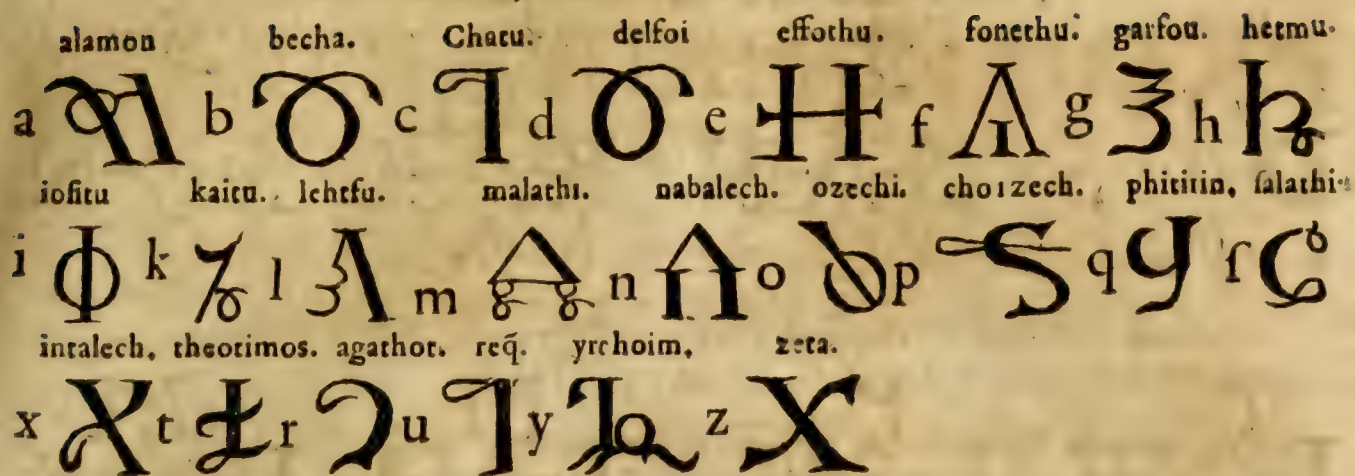 alamon becha. Chatu. delfoi effothu. fonethu. garfou. hetmu.
a b c d e f g h
iofitu kaitu. lchtfu. malathi. nabalech. ozechi. choizech. phititin, salathi
i k l m n o p q ſ
intalech. theotimos. agathot. req̃. yrchoim, zeta.
x t r u y z